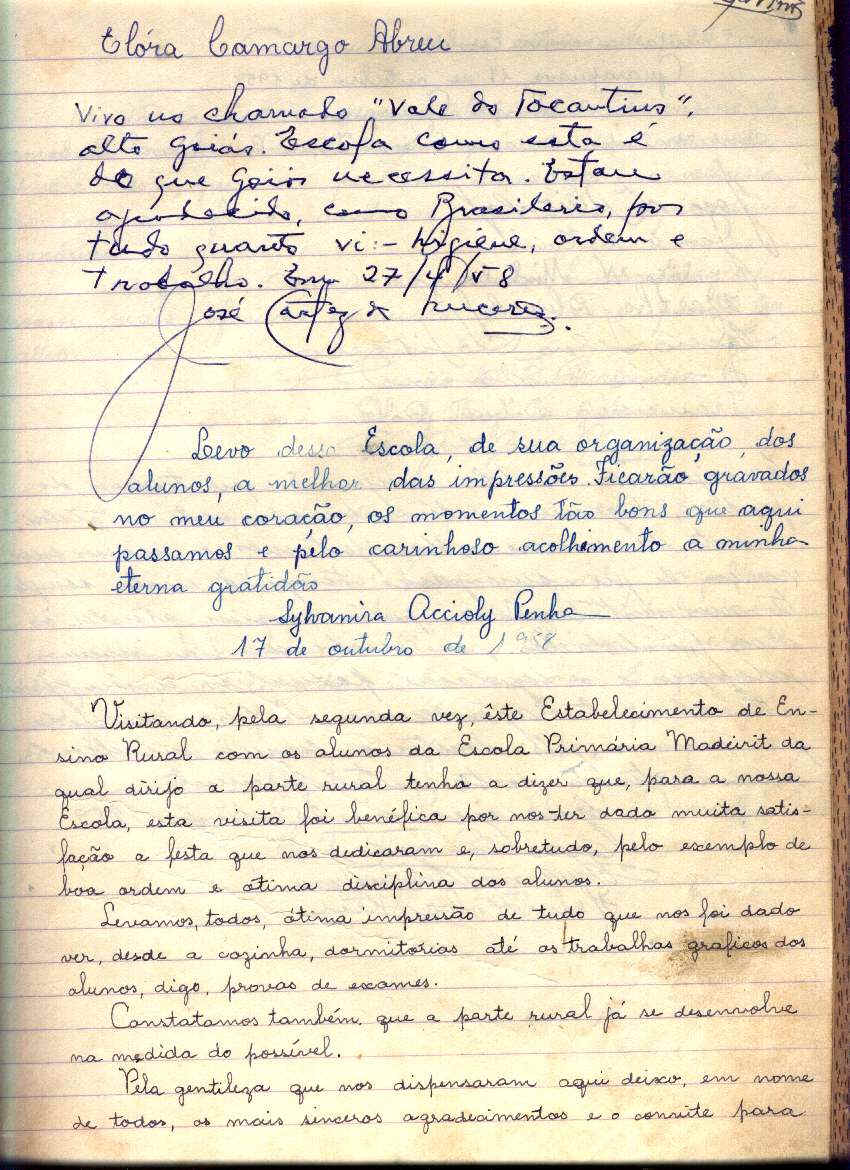 Elóra Camargo Abreu
Vivo no chamado "Vale do Tocantins",
alto Goiás. Escola como esta é
do que Goiás necessita. Estou
agradecido, como Brasileiro, por
tudo quanto vi: - higiene, ordem e
trabalho. Em 27/4/58
José
Levo dessa Escola, de sua organização, dos
alunos, a melhor das impressões. Ficarão gravados
no meu coração, os momentos tão bons que aqui
passamos e pelo carinhoso acolhimento a minha
eterna gratidão
Sylvanira Accioly Penha
17 de outubro de 1958
Visitando, pela segunda vez, êste Estabelecimento de En-
sino Rural com os alunos da Escola Primária Madeirit da
qual dirijo a parte rural tenho a dizer que, para a nossa
Escola, esta visita foi benéfica por nos ter dado muita satis-
fação a festa que nos dedicaram e, sobretudo, pelo exemplo de
boa ordem e ótima disciplina dos alunos.
Levamos, todos, ótima impressão de tudo que nos foi dado
ver, desde a cozinha, dormitorios até os trabalhos graficos dos
alunos, digo, provas de exames.
Constatamos também que a parte rural já se desenvolve
na medida do possível.
Pela gentileza que nos dispensaram aqui deixo, em nome
de todos, os mais sinceros agradecimentos e o convite para